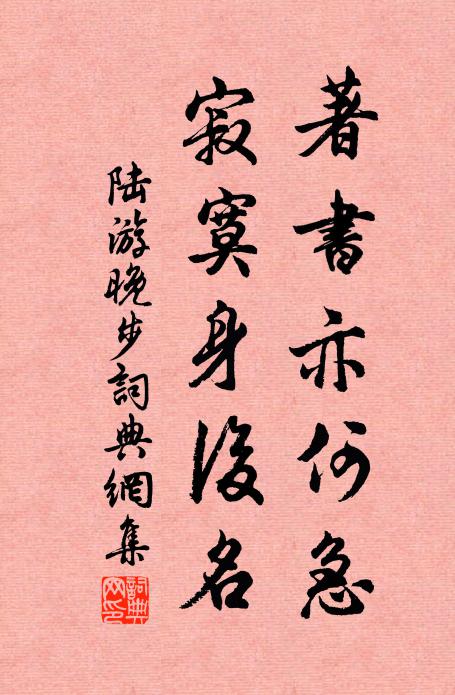 著書亦何急
寂寞身後名
陸游晚步詞典網集
詞典網印